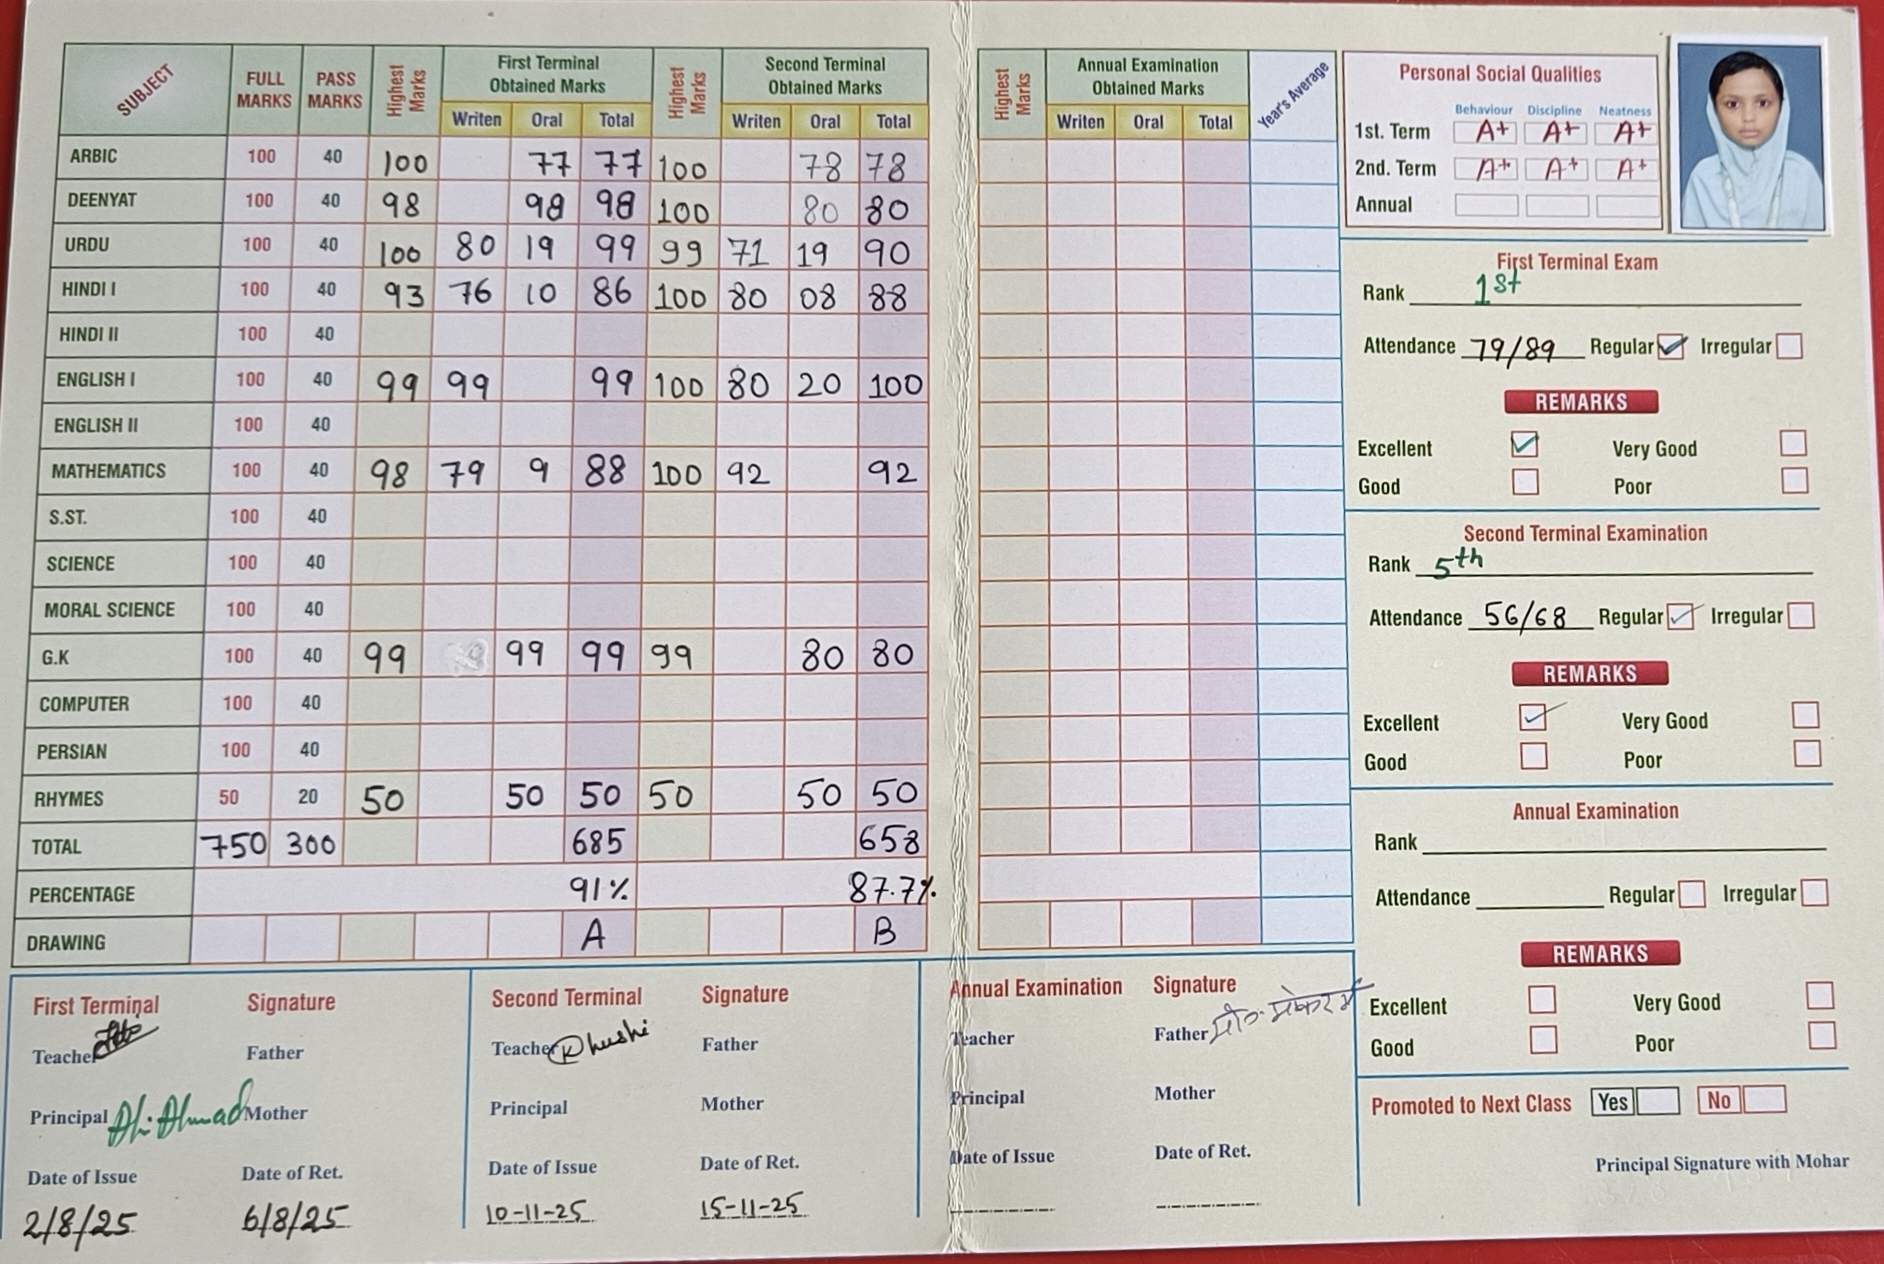 SUBJECT FULL MARKS PASS MARKS Highest Marks First Terminal Obtained Marks Highest Marks Second Terminal Obtained Marks
Writen Oral Total Writen Oral Total
ARBIC 100 40 100 77 77 100 78 78
DEENYAT 100 40 98 98 98 100 80 80
URDU 100 40 100 80 19 99 99 71 19 90
HINDI I 100 40 93 76 10 86 100 80 08 88
HINDI II 100 40
ENGLISH I 100 40 99 99 99 100 80 20 100
ENGLISH II 100 40
MATHEMATICS 100 40 98 79 9 88 100 92 92
S.ST. 100 40
SCIENCE 100 40
MORAL SCIENCE 100 40
G.K 100 40 99 99 99 99 80 80
COMPUTER 100 40
PERSIAN 100 40
RHYMES 50 20 50 50 50 50 50 50
TOTAL 750 300 685 658
PERCENTAGE 91% 87.7%
DRAWING A B
First Terminal Signature
Teacher Father
Principal Ali Ahmad Mother
Date of Issue Date of Ret.
2/8/25 6/8/25
Second Terminal Signature
Teacher Khushi Father
Principal Mother
Date of Issue Date of Ret.
10-11-25 15-11-25
Highest Marks Annual Examination Obtained Marks Year's Average
Writen Oral Total
Annual Examination Signature
Teacher Father
Principal Mother
Date of Issue Date of Ret.
Personal Social Qualities
Behaviour Discipline Neatness
1st. Term A+ A+ A+
2nd. Term A+ A+ A+
Annual
First Terminal Exam
Rank 1st
Attendance 79/89 Regular Irregular
REMARKS
Excellent Very Good
Good Poor
Second Terminal Examination
Rank 5th
Attendance 56/68 Regular Irregular
REMARKS
Excellent Very Good
Good Poor
Annual Examination
Rank
Attendance Regular Irregular
REMARKS
Excellent Very Good
Good Poor
Promoted to Next Class Yes No
Principal Signature with Mohar